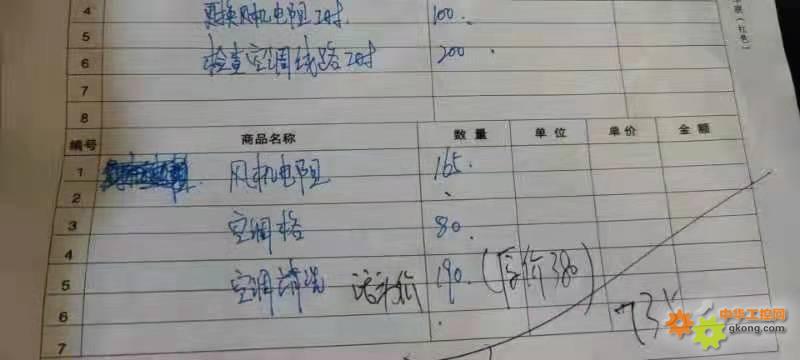 4 更换风机电阻工时 100.
5
6 检查空调线路工时 200
7
8
编号 商品名称 数量 单位 单价 金额
1 风机电阻 165.
2
3 空调格 80.
4
5 空调清洗 活动价 190. (原价380)
6
7
中华工控网
gkong.com